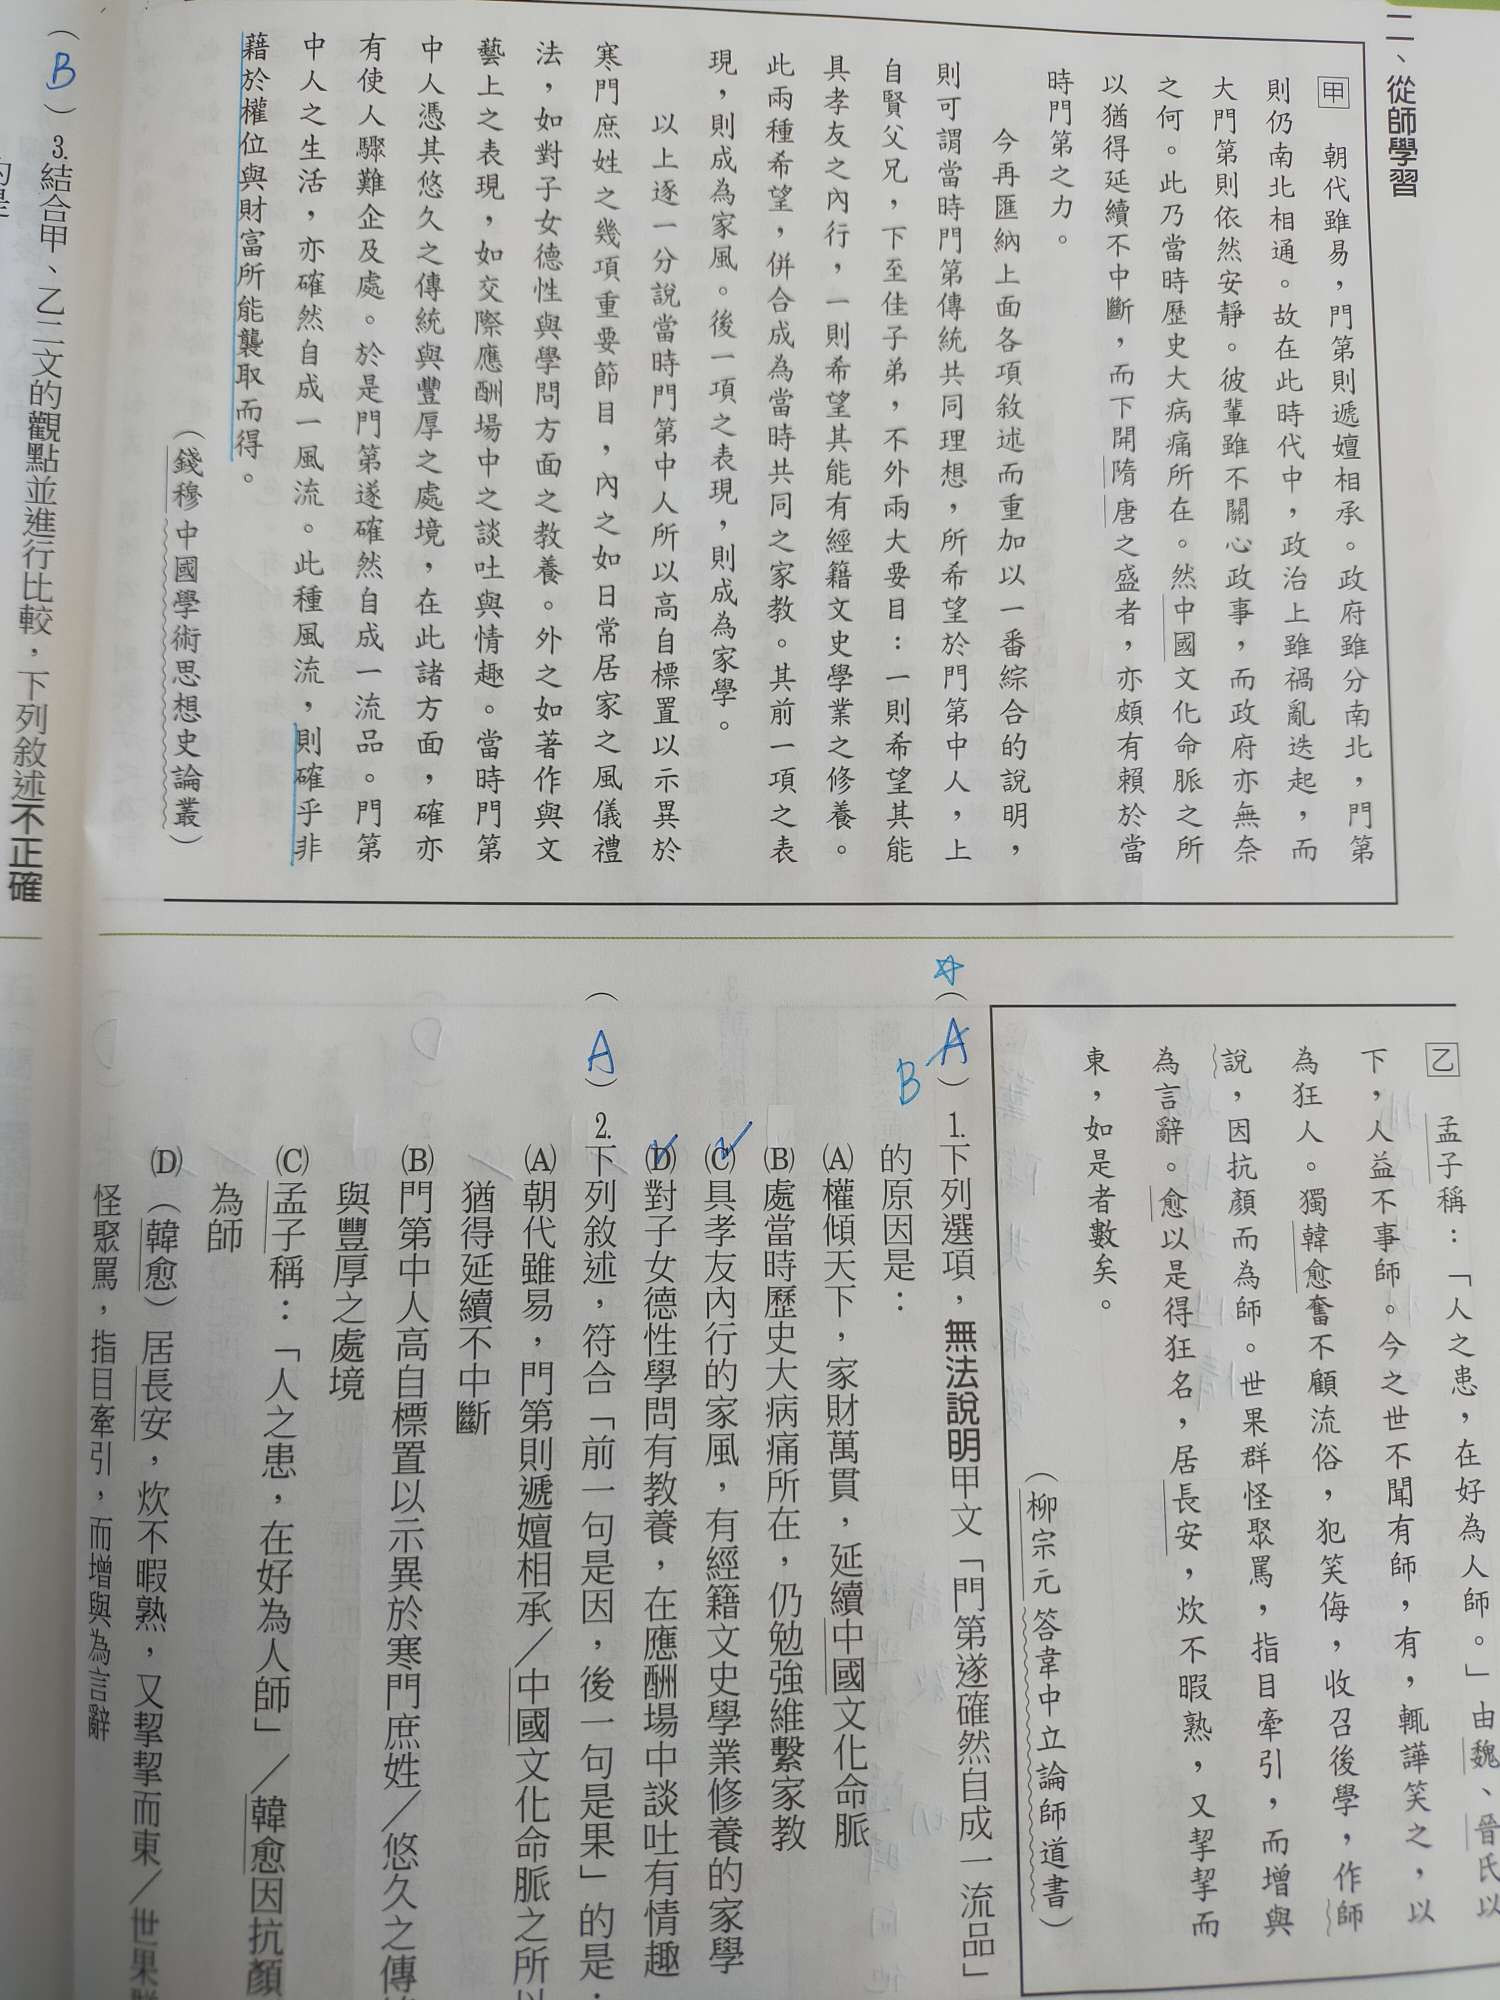 二、從師學習
甲　朝代雖易，門第則遞嬗相承。政府雖分南北，門第
則仍南北相通。故在此時代中，政治上雖禍亂迭起，而
大門第則依然安靜。彼輩雖不關心政事，而政府亦無奈
之何。此乃當時歷史大病痛所在。然中國文化命脈之所
以猶得延續不中斷，而下開隋唐之盛者，亦頗有賴於當
時門第之力。
今再匯納上面各項敘述而重加以一番綜合的說明，
則可謂當時門第傳統共同理想，所希望於門第中人，上
自賢父兄，下至佳子弟，不外兩大要目：一則希望其能
具孝友之內行，一則希望其能有經籍文史學業之修養。
此兩種希望，併合成為當時共同之家教。其前一項之表
現，則成為家風。後一項之表現，則成為家學。
以上逐一分說當時門第中人所以高自標置以示異於
寒門庶姓之幾項重要節目，內之如日常居家之風儀禮
法，如對子女德性與學問方面之教養。外之如著作與文
藝上之表現，如交際應酬場中之談吐與情趣。當時門第
中人憑其悠久之傳統與豐厚之處境，在此諸方面，確亦
有使人驟難企及處。於是門第遂確然自成一流品。門第
中人之生活，亦確然自成一風流。此種風流，則確乎非
藉於權位與財富所能襲取而得。
（錢穆中國學術思想史論叢）
（B）3.結合甲、乙二文的觀點並進行比較，下列敘述不正確
的是
乙　孟子稱：「人之患，在好為人師。」由魏、晉氏以
下，人益不事師。今之世不聞有師，有，輒譁笑之，以
為狂人。獨韓愈奮不顧流俗，犯笑侮，收召後學，作師
說，因抗顏而為師。世果群怪聚罵，指目牽引，而增與
為言辭。愈以是得狂名，居長安，炊不暇熟，又挈挈而
東，如是者數矣。
（柳宗元答韋中立論師道書）
☆（A）1.下列選項，無法說明甲文「門第遂確然自成一流品」
B
的原因是：
(A)權傾天下，家財萬貫，延續中國文化命脈
(B)處當時歷史大病痛所在，仍勉強維繫家教
(C)具孝友內行的家風，有經籍文史學業修養的家學
(D)對子女德性學問有教養，在應酬場中談吐有情趣
（A）2.下列敘述，符合「前一句是因，後一句是果」的是：
(A)朝代雖易，門第則遞嬗相承／中國文化命脈之所以
猶得延續不中斷
(B)門第中人高自標置以示異於寒門庶姓／悠久之傳統
與豐厚之處境
(C)孟子稱：「人之患，在好為人師」／韓愈因抗顏
為師
(D)（韓愈）居長安，炊不暇熟，又挈挈而東／世果群
怪聚罵，指目牽引，而增與為言辭